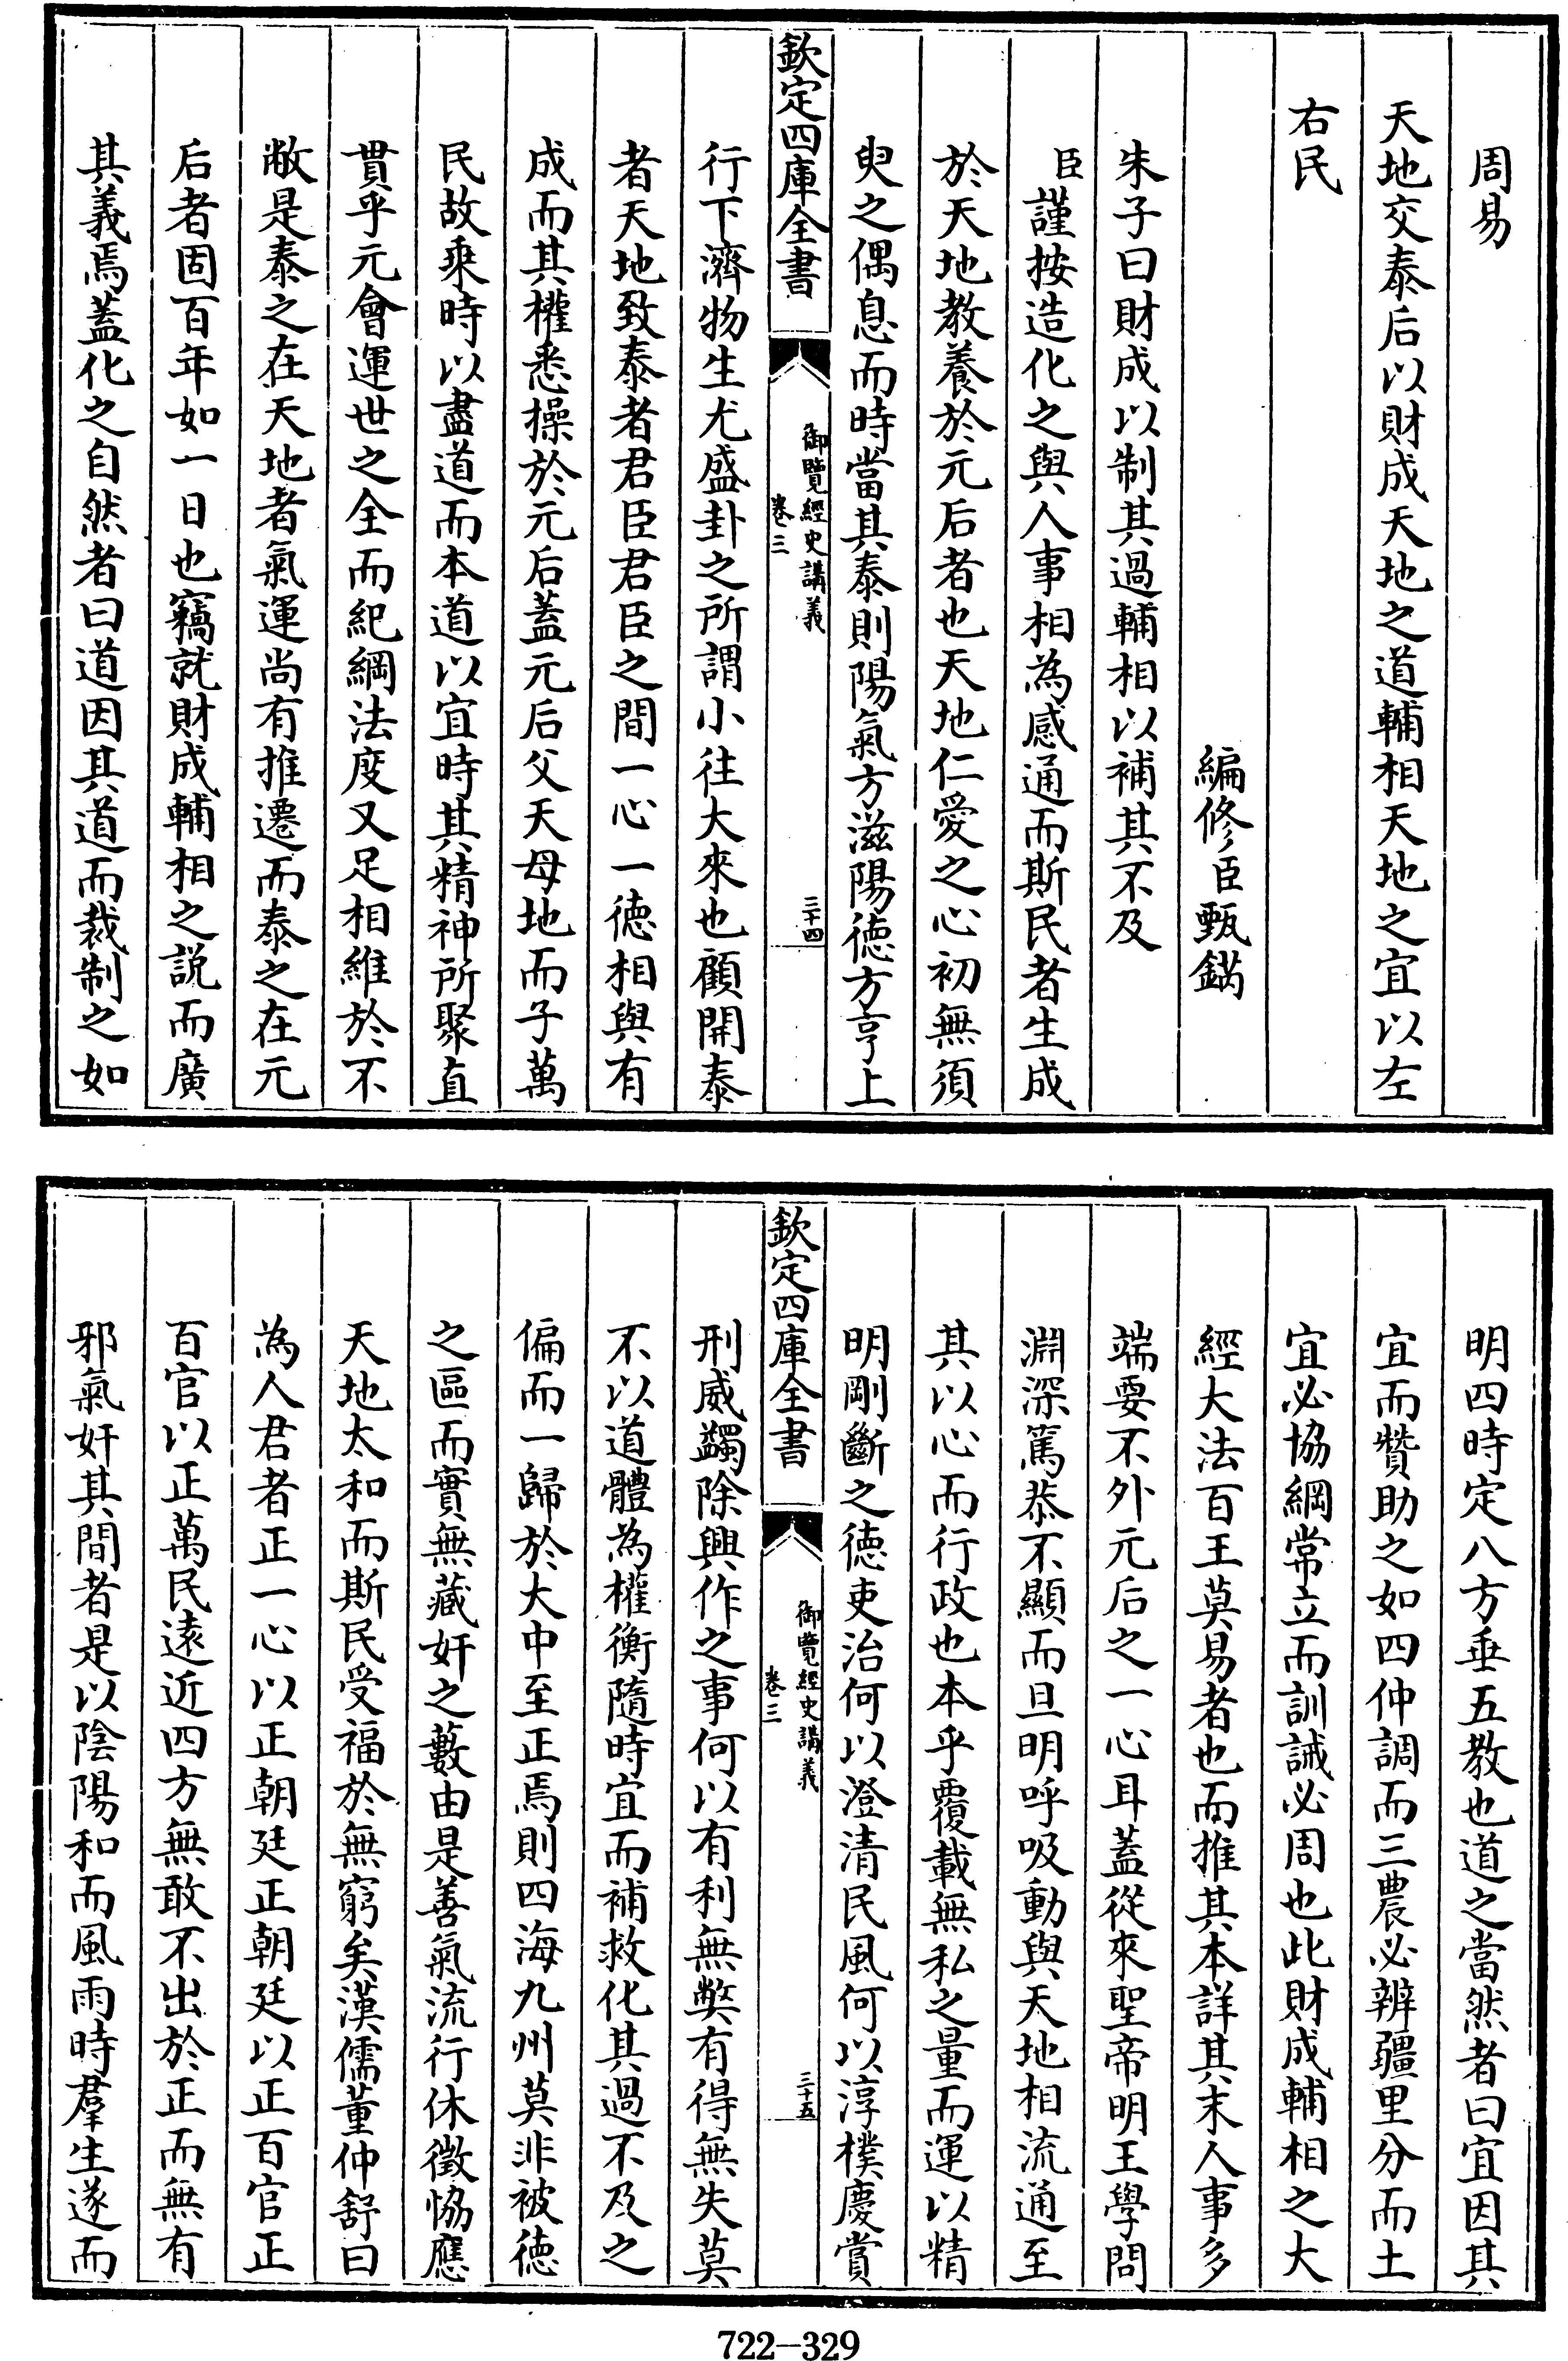 周易
天地交泰后以財成天地之道輔相天地之宜以左
右民
編修臣甄鍋
朱子曰財成以制其過輔相以補其不及
臣謹按造化之與人事相為感通而斯民者生成
於天地教養於元后者也天地仁愛之心初無須
臾之偶息而時當其泰則陽氣方滋陽德方亨上
欽定四庫全書
御覽經史講義
卷三
三十四
行下濟物生尤盛卦之所謂小往大來也顧開泰
者天地致泰者君臣君臣之間一心一德相與有
成而其權悉操於元后蓋元后父天母地而子萬
民故乘時以盡道而本道以宜時其精神所聚直
貫乎元會運世之全而紀綱法度又足相維於不
敝是泰之在天地者氣運尚有推遷而泰之在元
后者固百年如一日也竊就財成輔相之說而廣
其義焉蓋化之自然者曰道因其道而裁制之如
明四時定八方垂五教也道之當然者曰宜因其
宜而贊助之如四仲調而三農必辨疆里分而土
宜必協綱常立而訓誡必周也此財成輔相之大
經大法百王莫易者也而推其本詳其末人事多
端要不外元后之一心耳蓋從來聖帝明王學問
淵深篤恭不顯而旦明呼吸動與天地相流通至
其以心而行政也本乎覆載無私之量而運以精
明剛斷之德吏治何以澄清民風何以淳樸慶賞
欽定四庫全書
御覽經史講義
卷三
三十五
刑威蠲除興作之事何以有利無弊有得無失莫
不以道體為權衡隨時宜而補救化其過不及之
偏而一歸於大中至正焉則四海九州莫非被德
之區而實無藏奸之藪由是善氣流行休徵恊應
天地太和而斯民受福於無窮矣漢儒董仲舒曰
為人君者正一心以正朝廷正朝廷以正百官正
百官以正萬民遠近四方無敢不出於正而無有
邪氣奸其間者是以陰陽和而風雨時羣生遂而
722—329